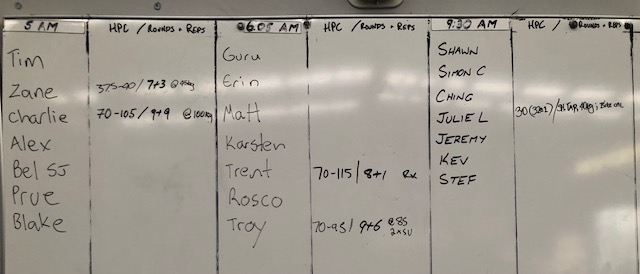 5 AM HPC / ROUNDS + REPS
Tim
Zane 37.5-90 / 7+3 @
Charlie 70-105 / 9+9 @100kg
Alex
Bel SJ
Prue
Blake
6:05 AM HPC / ROUNDS + REPS
Guru
Erin
Matt
Karsten
Trent 70-115 / 8+1 Rx
Rosco
Troy 70-95 / 9+6 @85
2xSU
9:30 AM HPC / ROUNDS + REPS
SHAWN
SIMON C
CHING
JULIE L 30
JEREMY
KEV
STEF